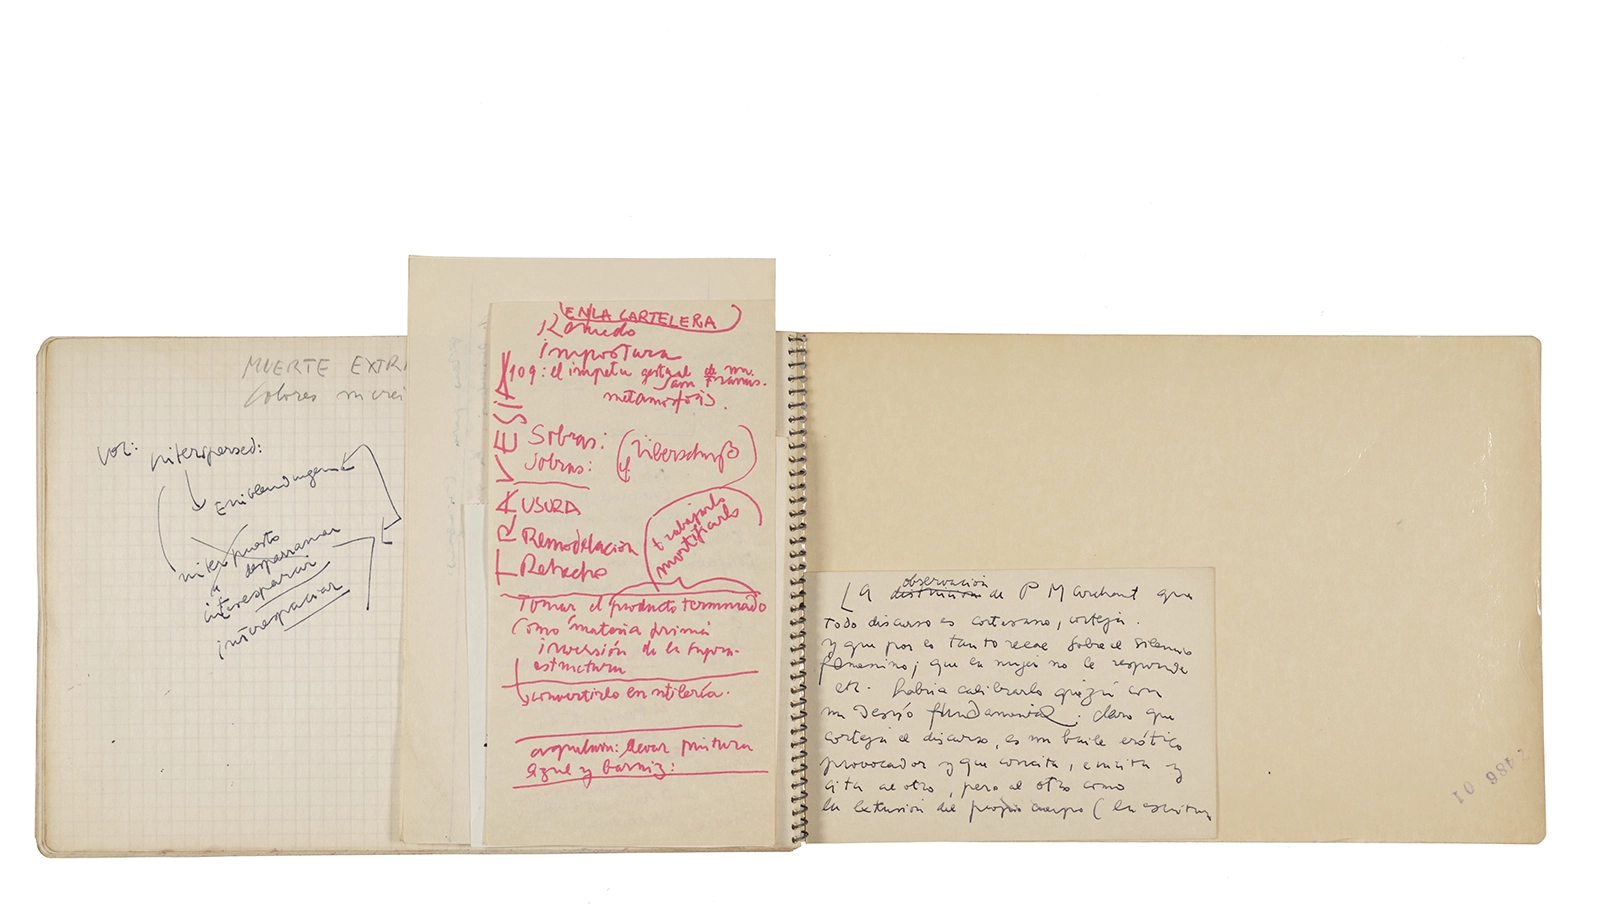 MUERTE EXTR
Colores
voz: interspersed:
interpuesto
desparramar
a
interesparcir
interespaciar
EN LA CARTELERA
Remedo
impostura
109: el impetu gestual de un
San Francis.
metamorfosis.
TRAVESIA
Sobras: (Überschuß)
sobras:
USURA
Remodelación
Rehecho
trabajarlo
mortificarlo
Tomar el producto terminado
como "materia prima"
inversión de la supra-
estructura
convertirlo en utilería.
llevar pintura
azul y barniz:
observación
La de P Marchant que
todo discurso es cortesano, corteja.
y que por lo tanto recae sobre el silencio
femenino; que la mujer no le responde
etc. habría calibrarlo quizá con
un Deseo fundamental. claro que
corteja el discurso, es un baile erótico
provocador y que concita, excita y
cita al otro, pero al otro como
la extensión del propio cuerpo (la escritura
2486 01